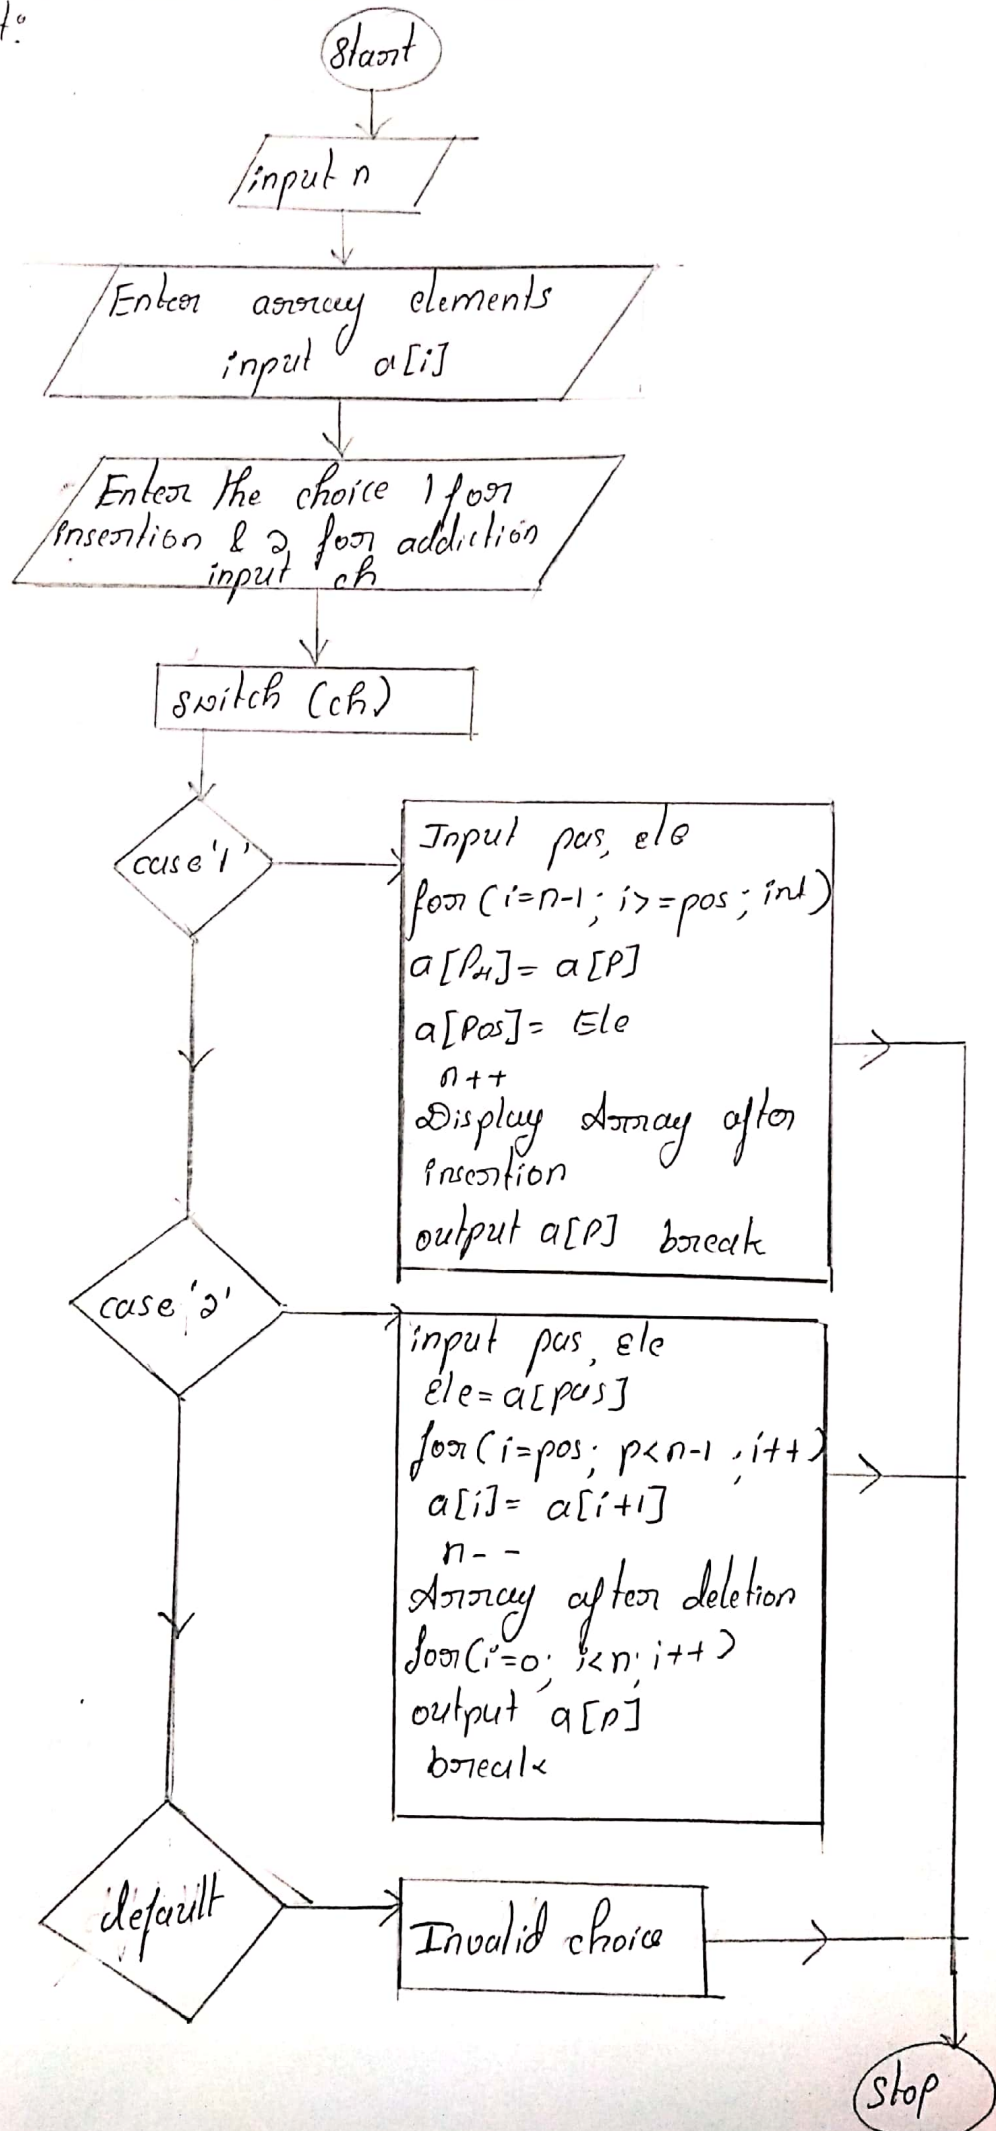 t:
Start
input n
Enter array elements
input a[i]
Enter the choice 1 for
insertion & 2 for addiction
input ch
switch (ch)
case '1'
Input pas, ele
for (i=n-1; i>=pos; int)
a[P+1]= a[P]
a[Pos]= Ele
n++
Display Array after
insertion
output a[P] break
case '2'
input pas, Ele
Ele=a[pas]
for(i=pos; p<n-1; i++)
a[i]= a[i+1]
n--
Array after deletion
for(i=0; i<n; i++)
output a[p]
break
default
Invalid choice
stop